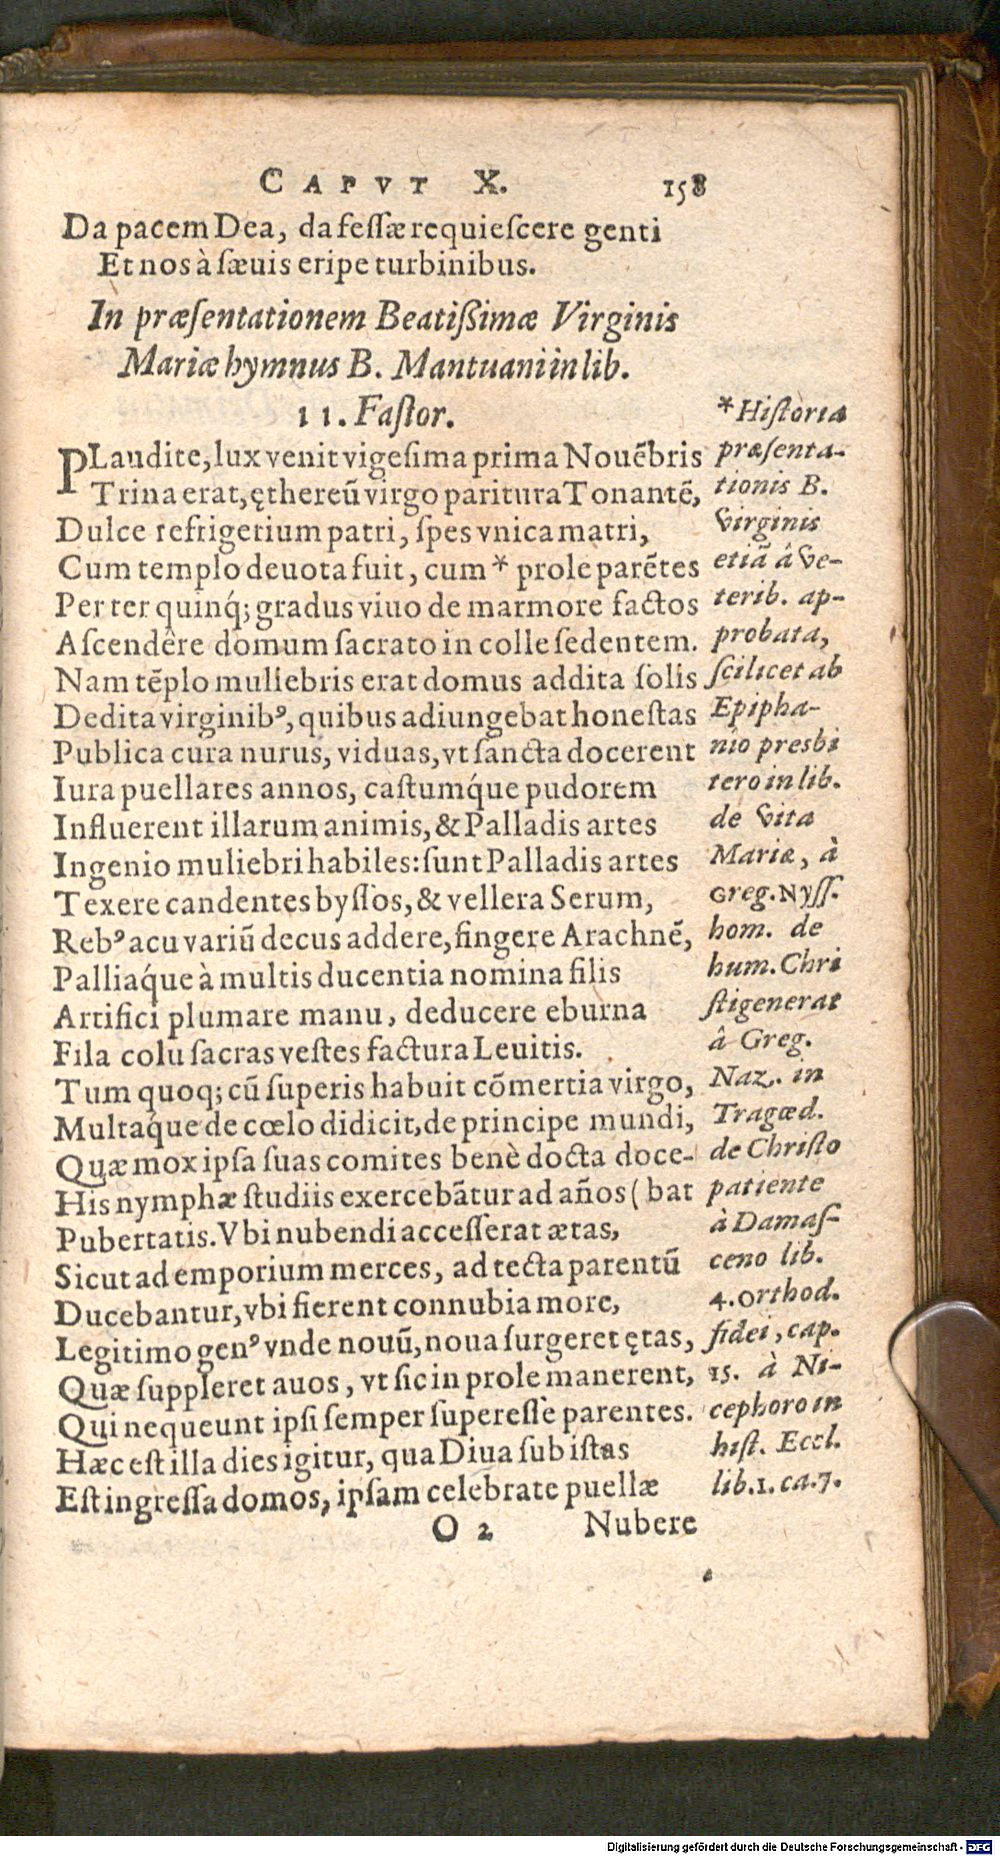 CAPVT X. 158
Da pacem Dea, da feſſæ requieſcere genti
Et nos à ſæuis eripe turbinibus.
In præſentationem Beatißimæ Virginis
Mariæ hymnus B. Mantuani in lib.
11. Faſtor.
PLaudite, lux venit vigeſima prima Nouẽbris
Trina erat, ęthereũ virgo paritura Tonantẽ,
Dulce refrigerium patri, ſpes vnica matri,
Cum templo deuota fuit, cum * prole parẽtes
Per ter quinq́; gradus viuo de marmore factos
Aſcendêre domum ſacrato in colle ſedentem.
Nam tẽplo muliebris erat domus addita ſolis
Dedita virginibꝰ, quibus adiungebat honeſtas
Publica cura nurus, viduas, vt ſancta docerent
Iura puellares annos, caſtumq́ue pudorem
Influerent illarum animis, & Palladis artes
Ingenio muliebri habiles: ſunt Palladis artes
Texere candentes byſſos, & vellera Serum,
Rebꝰ acu variũ decus addere, fingere Arachnẽ,
Palliaq́ue à multis ducentia nomina filis
Artifici plumare manu, deducere eburna
Fila colu ſacras veſtes factura Leuitis.
Tum quoq; cũ ſuperis habuit cõmertia virgo,
Multaq́ue de cœlo didicit, de principe mundi,
Quæ mox ipſa ſuas comites benè docta doce-
His nymphæ ſtudiis exercebãtur ad años (bat
Pubertatis. Vbi nubendi acceſſerat ætas,
Sicut ad emporium merces, ad tecta parentũ
Ducebantur, vbi fierent connubia more,
Legitimo genꝰ vnde nouũ, noua ſurgeret ętas,
Quæ ſuppleret auos, vt ſic in prole manerent,
Qui nequeunt ipſi ſemper ſupereſſe parentes.
Hæc eſt illa dies igitur, qua Diua ſub iſtas
Eſt ingreſſa domos, ipſam celebrate puellæ
O 2 Nubere
* Hiſtoria
præſenta-
tionis B.
Virginis
etiã á ve-
terib. ap-
probata,
ſcilicet ab
Epipha-
nio presbi
tero in lib.
de Vita
Mariæ, à
Greg. Nyſſ.
hom. de
hum. Chri
ſti generat
â Greg.
Naz. in
Tragœd.
de Chriſto
patiente
à Damaſ-
ceno lib.
4. orthod.
fidei, cap.
15. à Ni-
cephoro in
hiſt. Eccl.
lib. 1. ca. 7.
Digitalisierung gefördert durch die Deutsche Forschungsgemeinschaft - DFG